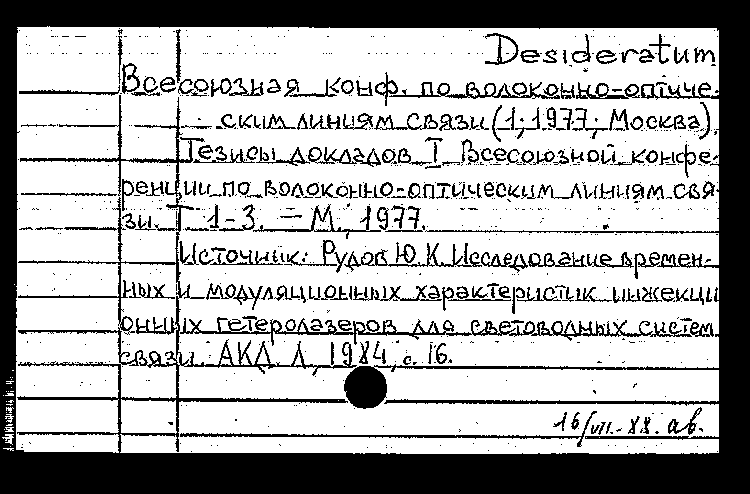 Desideratum
Всесоюзная конф. по волоконно-оптиче-
ским линиям связи (1; 1977; Москва).
Тезисы докладов I Всесоюзной конфе-
ренции по волоконно-оптическим линиям свя-
зи. Т. 1-3. – М., 1977.
Источник: Рудов Ю.К. Исследование времен-
ных и модуляционных характеристик инжекци
онных гетеролазеров для световодных систем
связи. АКД. Л., 1984, с. 16.
16/VII.-88. ав.